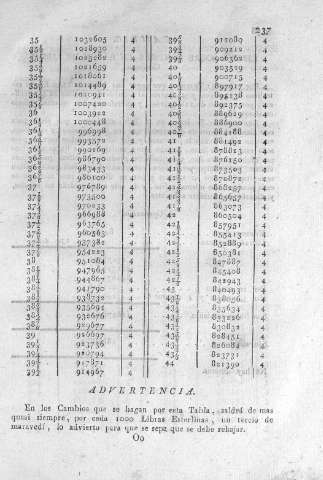 237
35 1032605 4 39⅝ 912080 4
35⅛ 1028930 4 39¾ 909212 4
35¼ 1025282 4 39⅞ 906362 4
35⅜ 1021659 4 40 903529 4
35½ 1018061 4 40⅛ 900715 4
35⅝ 1014489 4 40¼ 897917 4
35¾ 1010941 4 40⅜ 895138 4
35⅞ 1007420 4 40½ 892375 4
36 1003922 4 40⅝ 889629 4
36⅛ 1000448 4 40¾ 886900 4
36¼ 996998 4 40⅞ 884188 4
36⅜ 993572 4 41 881492 4
36½ 990169 4 41⅛ 878813 4
36⅝ 986790 4 41¼ 876150 4
36¾ 983433 4 41⅜ 873503 4
36⅞ 980100 4 41½ 870872 4
37 976789 4 41⅝ 868257 4
37⅛ 973500 4 41¾ 865657 4
37¼ 970233 4 41⅞ 863073 4
37⅜ 966988 4 42 860504 4
37½ 963765 4 42⅛ 857951 4
37⅝ 960563 4 42¼ 855413 4
37¾ 957382 4 42⅜ 852889 4
37⅞ 954223 4 42½ 850381 4
38 951084 4 42⅝ 847887 4
38⅛ 947965 4 42¾ 845408 4
38¼ 944867 4 42⅞ 842943 4
38⅜ 941790 4 43 840493 4
38½ 938732 4 43⅛ 838056 4
38⅝ 935694 4 43¼ 835634 4
38¾ 932676 4 43⅜ 4
38⅞ 929677 4 43½ 830832 4
39 926697 4 43⅝ 828451 4
39⅛ 923736 4 43¾ 4
39¼ 920794 4 43⅞ 823731 4
39⅜ 917871 4 44 821390 4
39½ 914967 4
ADVERTENCIA.
En los Cambios que se hagan por esta Tabla, saldrá de mas
quasi siempre, por cada 1000 Libras Esterlinas, un tercio de
maravedí, lo advierto para que se sepa que se debe rebajar.
Oo